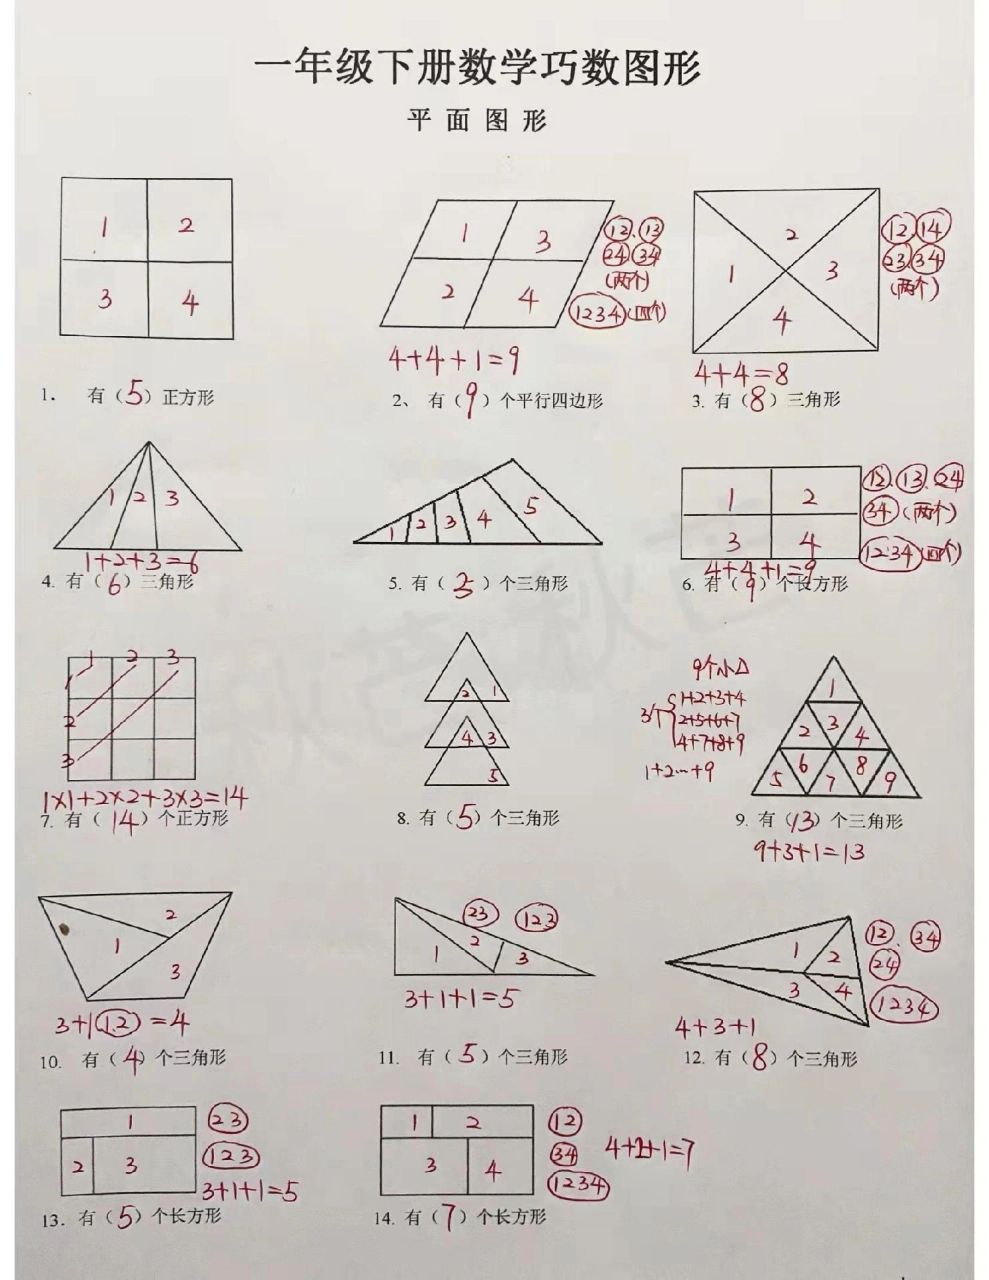 一年级下册数学巧数图形
平面图形
1 2
3 4
1. 有（5）正方形
1 3
2 4
12、13
24 34
(两个)
1234 (四个)
4+4+1=9
2、 有（9）个平行四边形
2
1 3
4
12、14
23、34
(两个)
4+4=8
3. 有（8）三角形
1 2 3
1+2+3=6
4. 有（6）三角形
1 2 3 4 5
5. 有（5）个三角形
1 2
3 4
12、13、24
34 (两个)
1234 (四个)
4+4+1=9
6. 有（9）个长方形
1 2 3
2
3
1×1+2×2+3×3=14
7. 有（14）个正方形
2 1
4 3
5
8. 有（5）个三角形
9个小△
3个 1+2+3+4
2+5+6+7
4+7+8+9
1+2…+9
1
2 3 4
5 6 7 8 9
9. 有（13）个三角形
9+3+1=13
1 2 3
3+1(1,2)=4
10. 有（4）个三角形
23 123
1 2 3
3+1+1=5
11. 有（5）个三角形
1 2
3 4
12、34
24
1234
4+3+1
12. 有（8）个三角形
1
2 3
23
123
3+1+1=5
13. 有（5）个长方形
1 2
3 4
12
34
1234
4+2+1=7
14. 有（7）个长方形